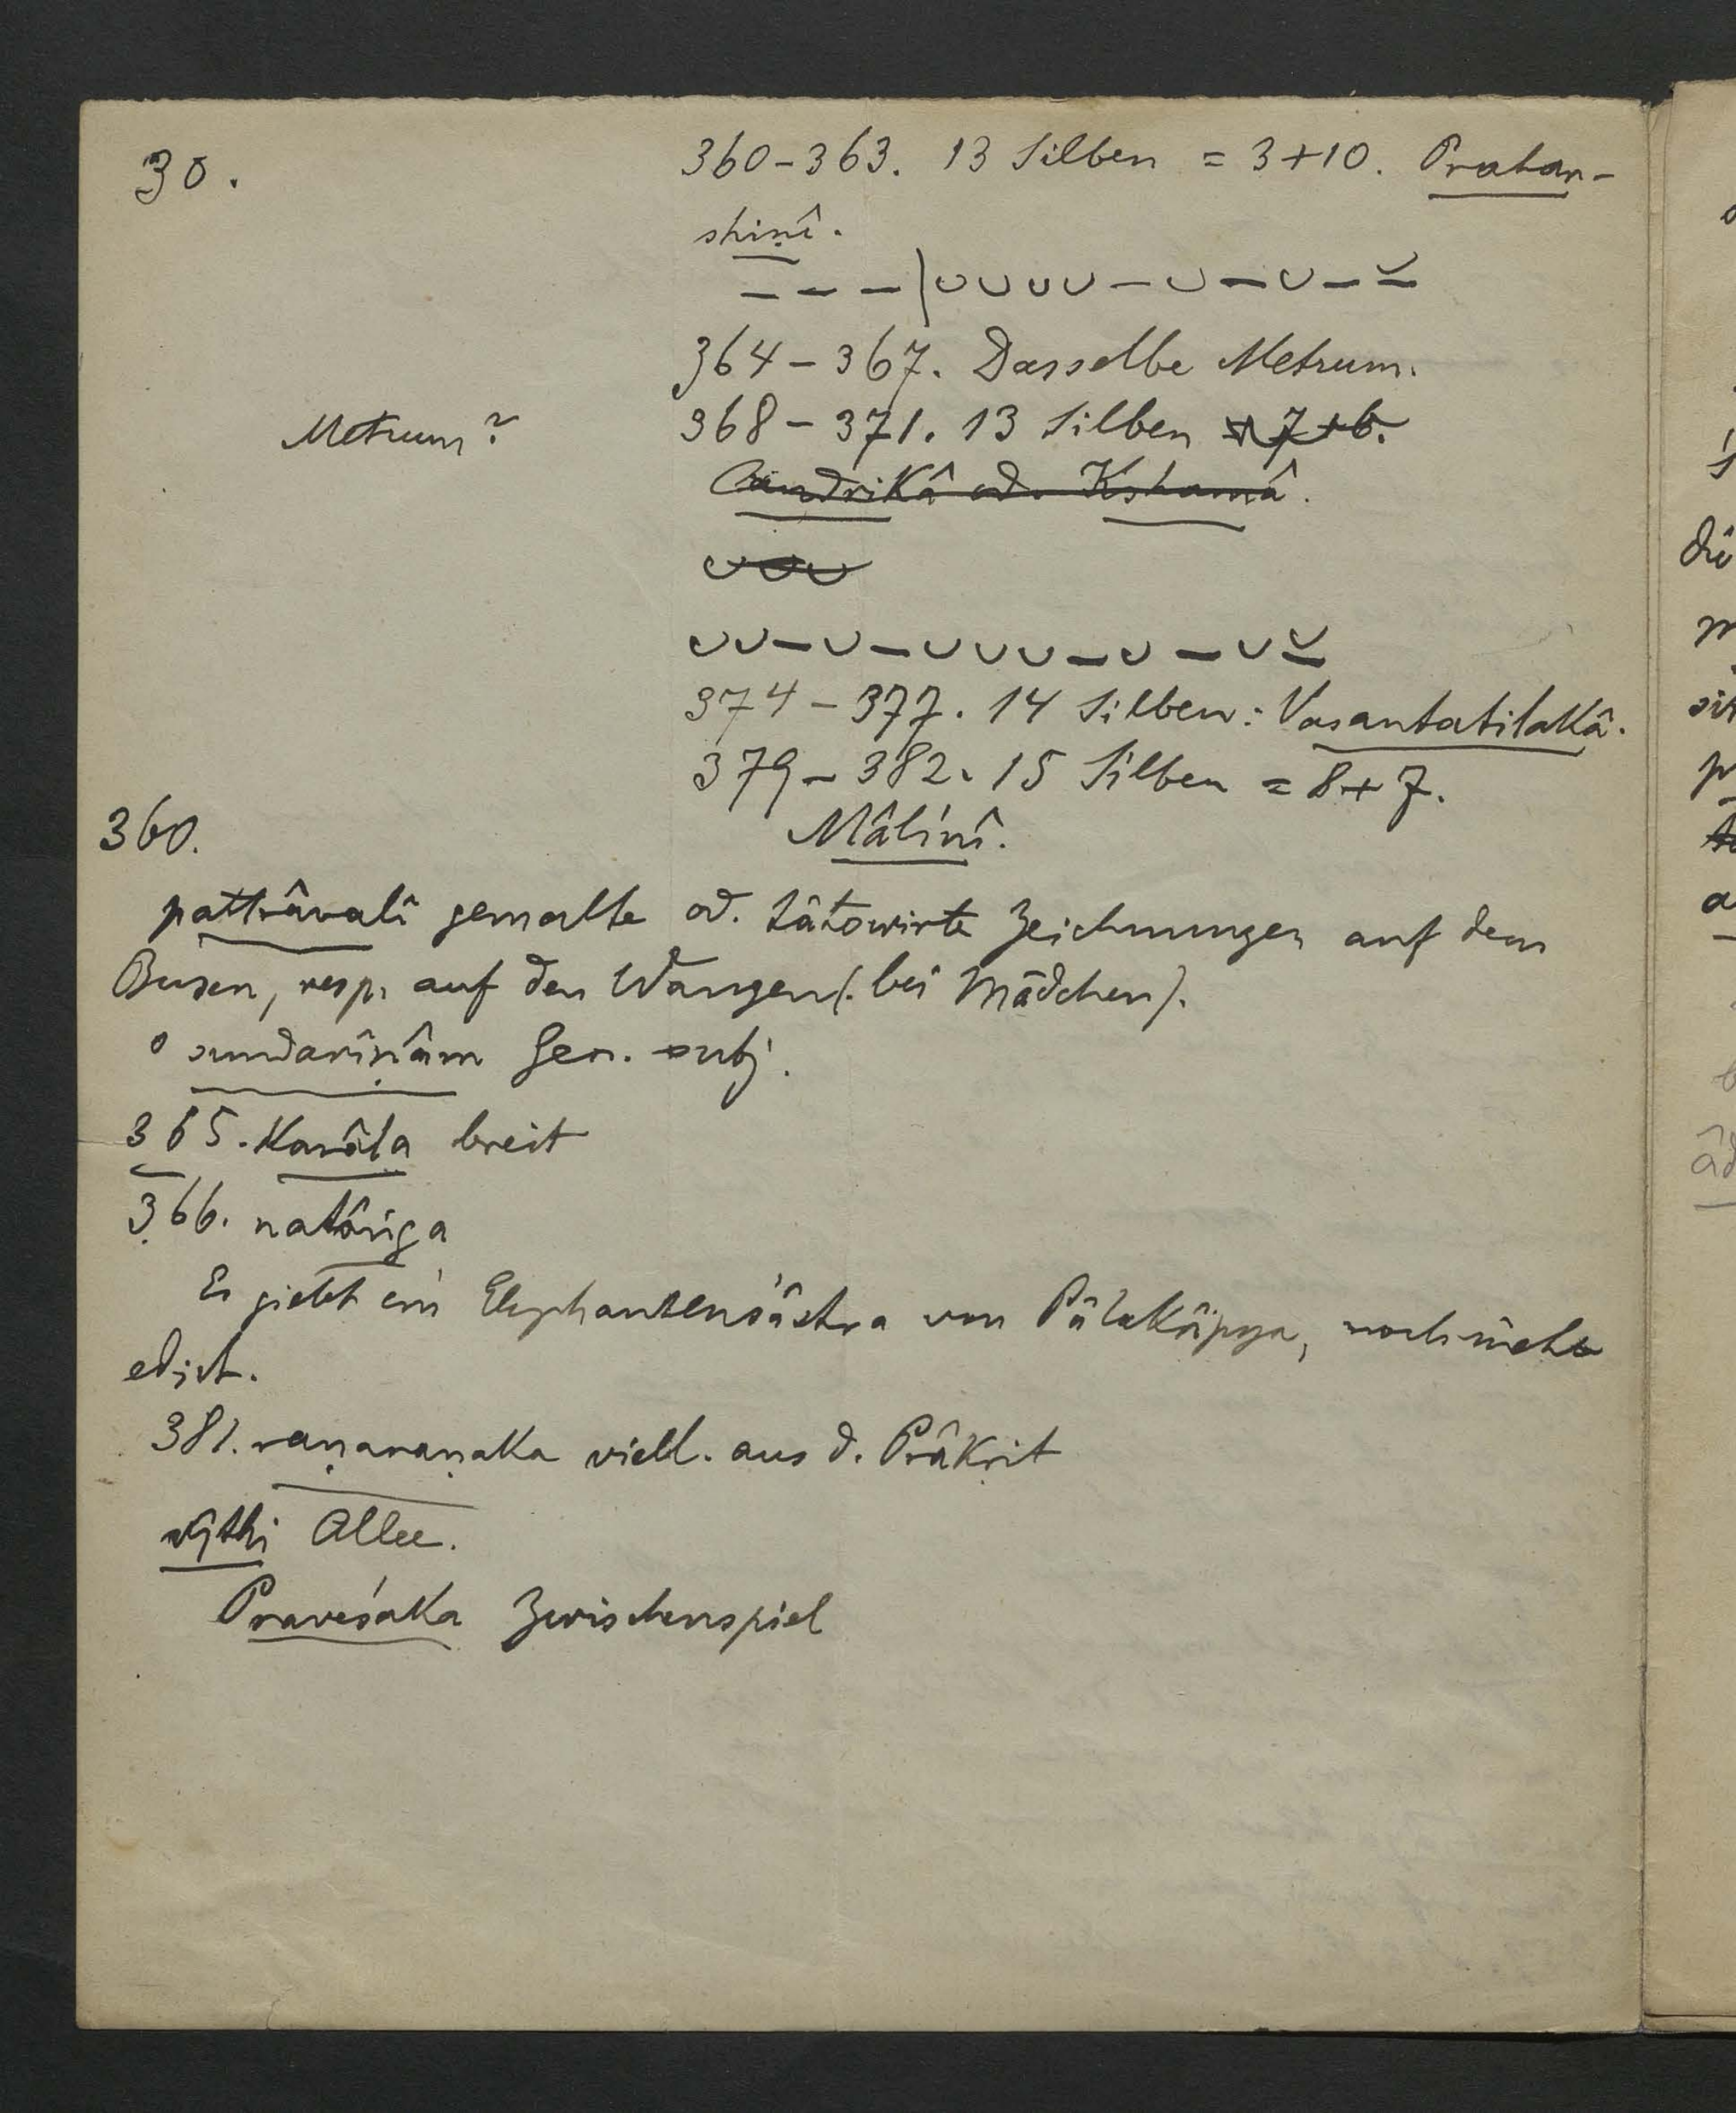 30.
360-363. 13 Silben = 3+10. Prahar-
shiṇî.
– – – | ᴗ ᴗ ᴗ ᴗ – ᴗ – ᴗ – ⏓
364-367. Dasselbe Metrum.
Metrum?
368-371. 13 Silben = 7+6.
Candrikâ od. Kshamâ.
ᴗ ᴗ ᴗ
ᴗ ᴗ – ᴗ – ᴗ ᴗ ᴗ – ᴗ – ᴗ ⏓
374-377. 14 Silben: Vasantatilakâ.
379-382. 15 Silben = 8+7.
Mâlinî.
360.
pattrâvalî gemalte od. tätowirte Zeichnungen auf dem
Busen, resp. auf den Wangen (. bei Mädchen).
° sundarîṇâm Gen. subj.
365. karâla breit
366. natâṅga
Es giebt ein Elephantenśâstra von Pâlakâpya, noch nicht
edirt.
381. raṇaraṇaka viell. aus d. Prâkrit
vîthi Allee.
Praveśaka Zwischenspiel